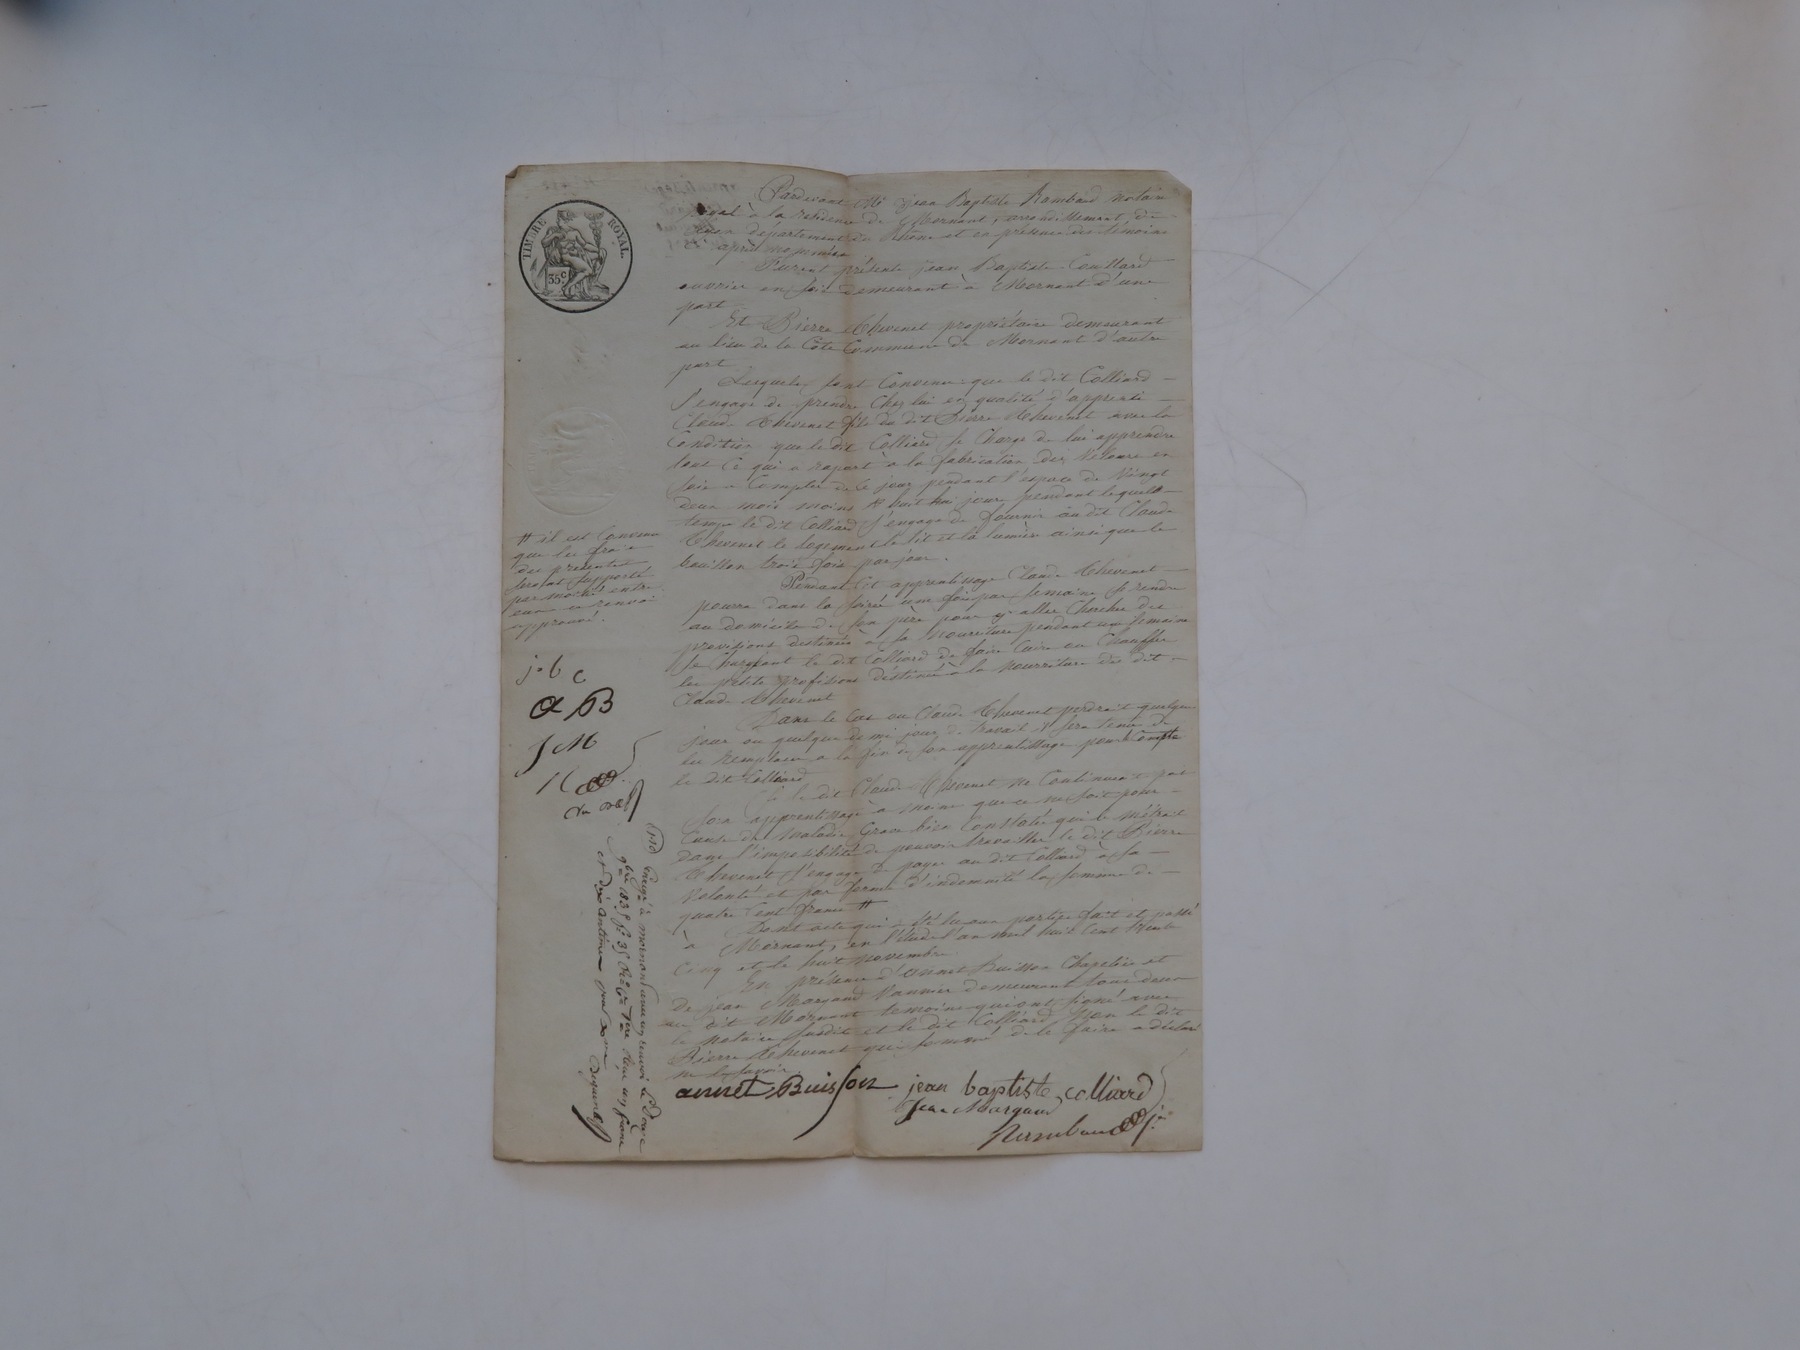 TIMBRE ROYAL
35 c
Pardevant Me jean Baptiste Rambaud notaire
royal à la residence de Mornant, arrondissement de
Lyon departement du Rhône et en présence des temoins
après nommés
Furent présents jean Baptiste Coullard
ouvrier en soie demeurant à Mornant d'une
part
Et Pierre Thevenet propriétaire demeurant
au lieu de la Côte Commune de Mornant d'autre
part
Lesquels sont Convenu que le dit Colliard
s'engage de prendre Chez lui en qualité d'apprenti
Claude Thevenet fils du dit Pierre Thevenet avec la
Condition que le dit Colliard se Charge de lui apprendre
tout Ce qui a raport à la fabrication des Velours en
soie a Compter de Ce jour pendant l'espace de Vingt
deux mois moins huit jours pendant lequel
temps le dit Colliard s'engage de fournir au dit Claude
Thevenet le logement le lit et la lumière ainsi que le
bouillon trois fois par jour.
Pendant Cet apprentissage Claude Thevenet
pourra dans la soirée une fois par semaine se rendre
au domicile de son père pour y aller Chercher des
provisions destinées à sa nouriture pendant une semaine
se Chargeant le dit Colliard de faire Cuire ou Chauffer
les petite provisions destiné à la nourriture du dit
Claude Thevenet
Dans le Cas ou Claude Thevenet perdrait quelques
jours ou quelque demi jours de travail il sera tenu de
les remplacer a la fin de son apprentissage pour Compte
le dit Colliard
Si le dit Claude Thevenet ne Continuait pas
son apprentissage à moins que ce ne soit pour
Cause de maladie Grave bien Constatée qui le métrait
dans l'impossibilité de pouvoir travailler le dit Pierre
Thevenet s'engage de payer au dit Colliard à sa
Volonté et par forme d'indemnité la somme de
quatre Cent francs #
Dont acte qui a été lu aux parties fait et passé
à Mornant, en l'étude l'an mil huit Cent trente
Cinq et le huit novembre
En présence d'annet Buisson Chapelier et
de jean Margaud Vannier demeurant tous deux
au dit Mornant temoins qui ont signé avec
le notaire susdit et le dit Colliard Non le dit
Pierre Thevenet qui sommé de le faire a déclaré
ne le savoir.
annet Buisson jean baptiste colliard
Jean Margaud
Rambaud
# il est Convenu
que les frais
des presentes
seront supporté
par moitié entre
eux ce renvoi
approuvé.
j. b c
a B
J M
Enregé à mornant